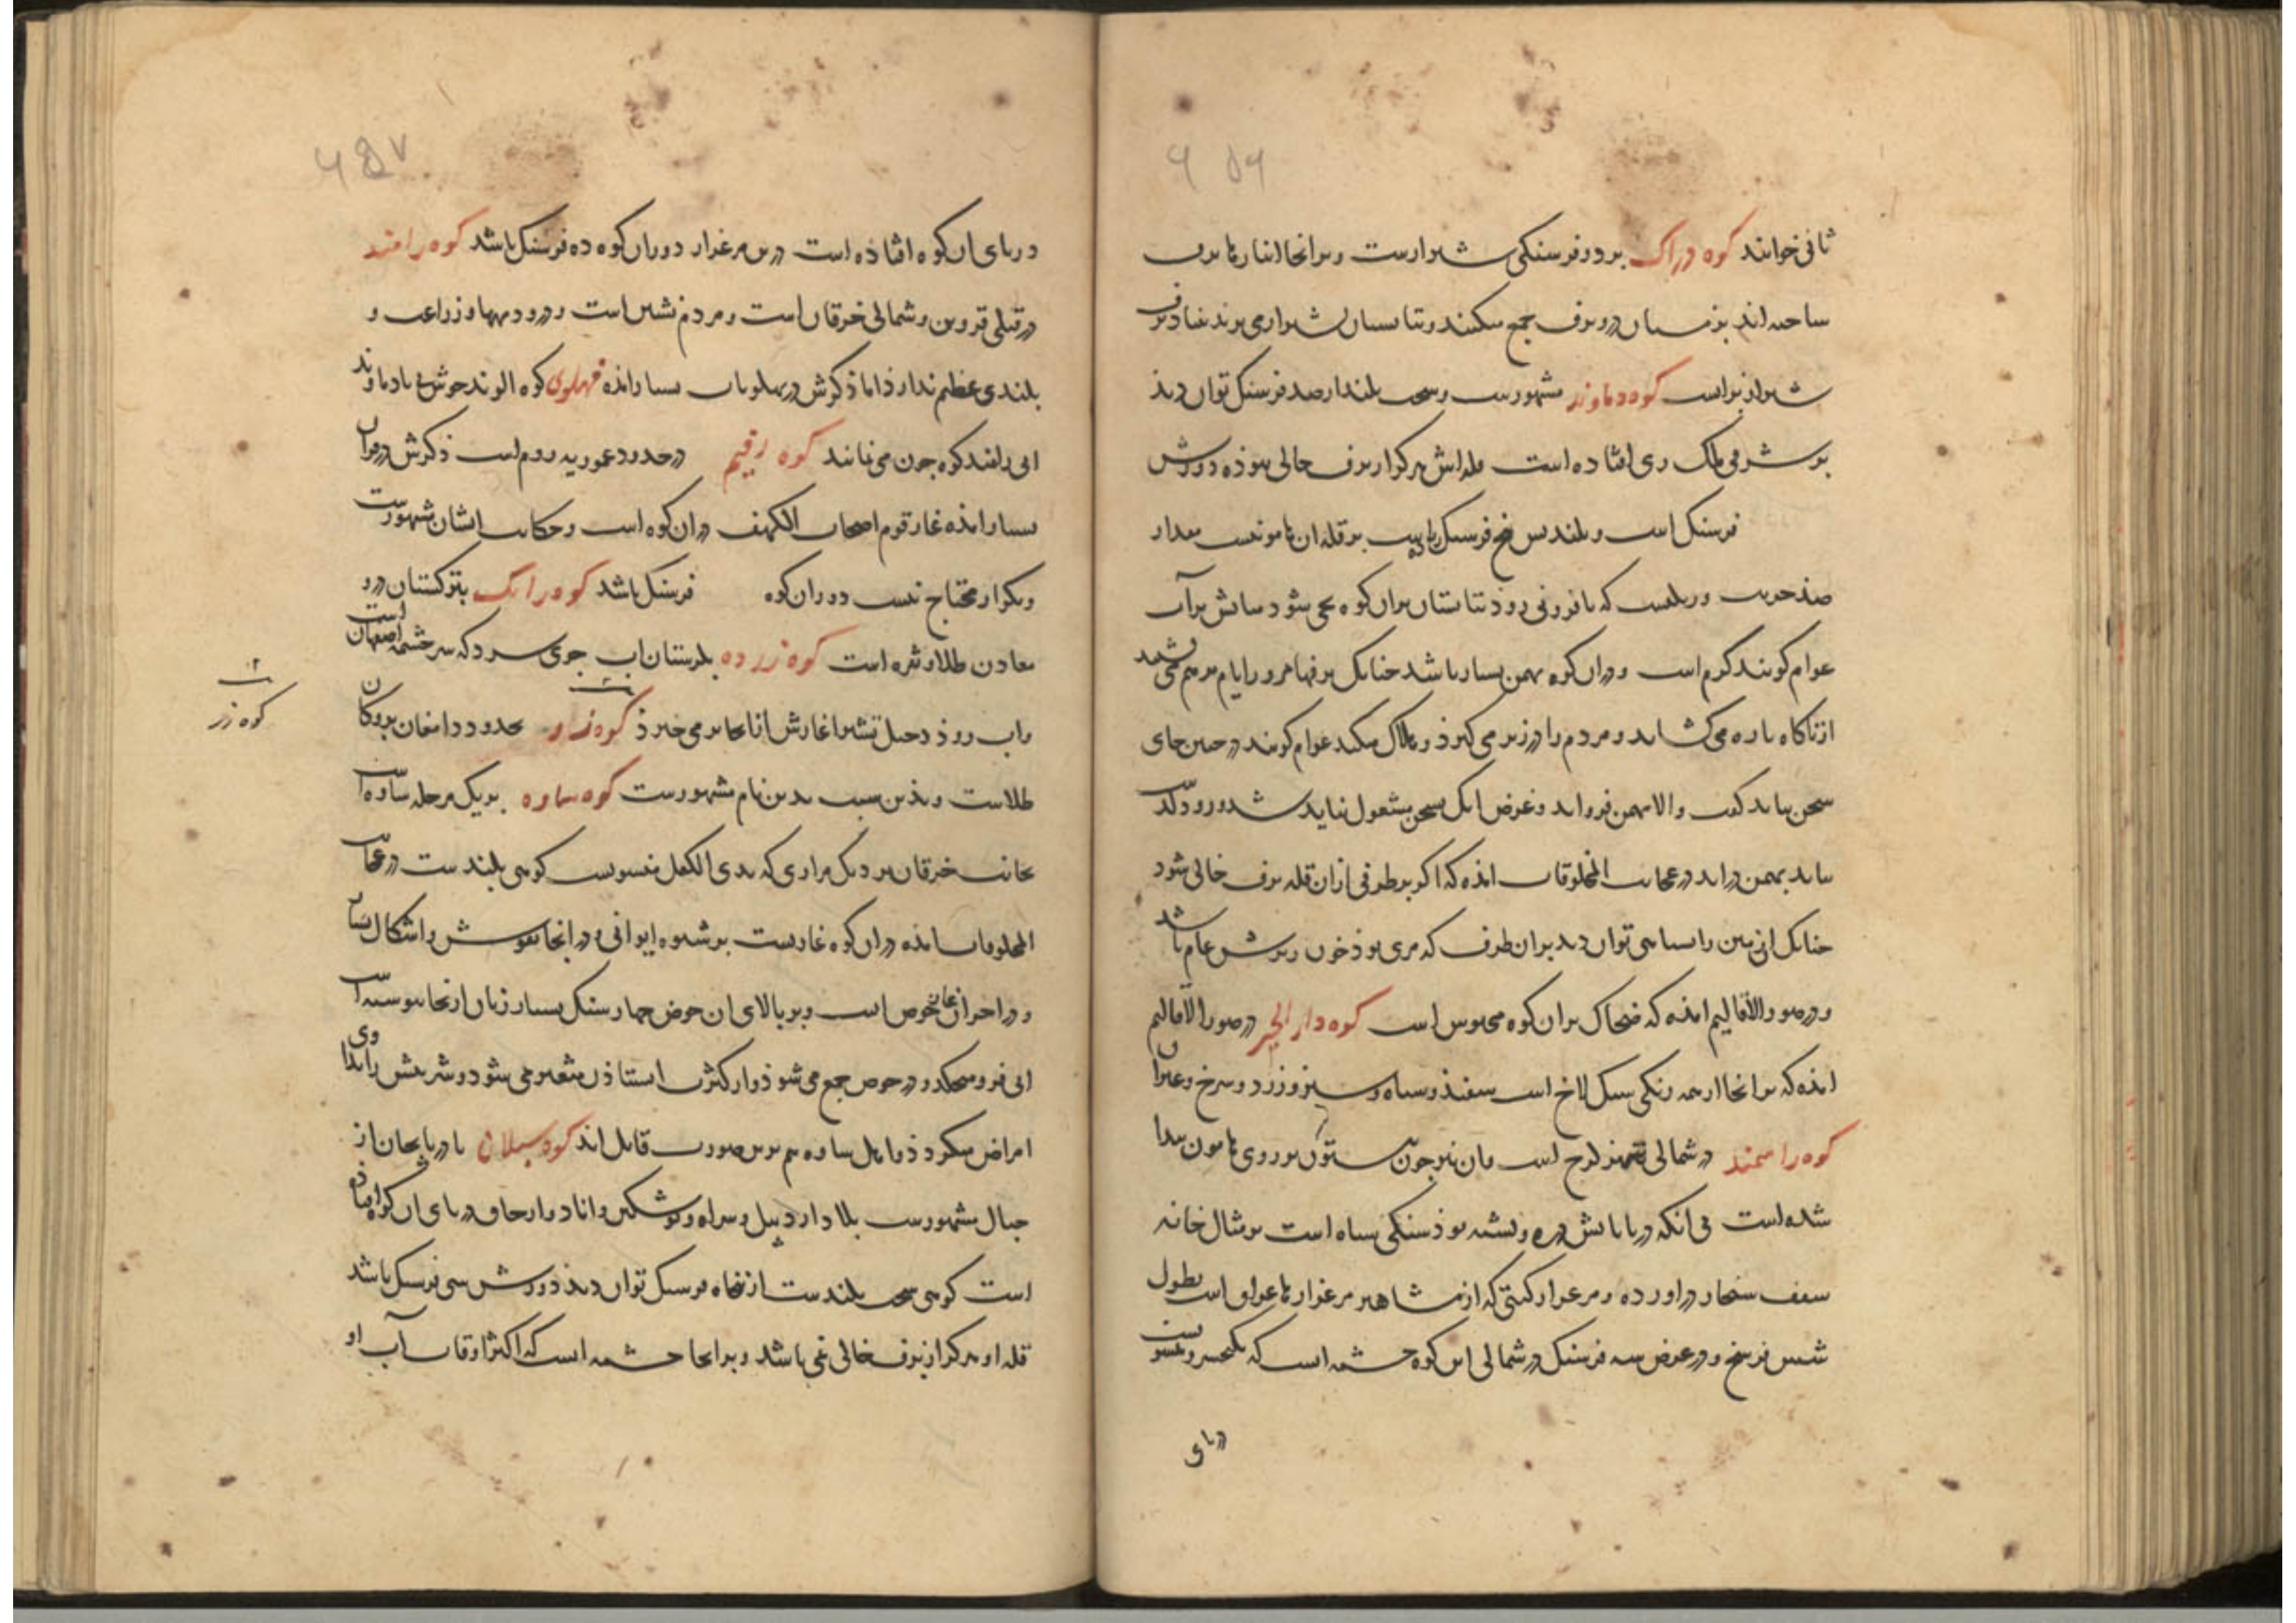 ۶۵۶
ثانی خوانند کوه دراک بر دو فرسنگی شیرازست و برانجا انبارها برف
ساخته‌اند بزمستان درو برف جمع میکنند و تابستان بشیراز می‌برند بنیاد برف
شیراز براست کوه دماوند مشهورست و سخت بلند از صد فرسنگ توان دید
بر شرقی ملک ری افتاده است قله‌اش هرگز از برف خالی نبوذه دورش
فرسنگ است و بلندیش پنج فرسنگ زیادت بر قله ان هامونیست مقدار
صد جریب و ریگیست که پا فرو می‌رود تابستان بران کوه یخی بشود
عوام کویند کرم است و دران کوه بهمن بسیار باشد چنانک برفها هر ور ایام بر هم می‌نشیند
از ناکاه پاره می‌کشاید و مردم را در زیر می‌کیرد و هلاک میکند عوام کویند در چنین جای
سخن نباید کفت والا بهمن فرو اید و غرض انک بسخن مشغول نباید شد و زود
بهمن در اید در عجایب المخلوقات امده که اکر بر طرفی ازان قله برف خالی شود
چنانک زمین را سیاهی توان دید بران طرف که مری بود خون ریزش عام باشد
و در صور الاقالیم امده که ضحاک بران کوه محبوس است کوه دار الحر در صور الاقالیم
امده که برانجا از همه رنکی سنگ لاخ است سفید و سیاه و سبز و زرد و سرخ و غیران
کوه راسمند در شمالی کرج است و ان نیز چون ستون بر روی هامون پیدا
شده است فی انکه در پایانش دره و پشته بود سنگی سیاه است بر مثال خانه
سقف در اورده و مرغزار کیتی که از مشاهیر مرغزارها عراق است بطول
شش فرسخ و در عرض سه فرسنگ در شمالی این کوه چشمه است که بکیخسرو منسوبست
در پای
۶۵۷
در پای ان کوه افتاده است درین مرغزار دوران کوه ده فرسنگ باشد کوه رامند
در قبلی قزوین و شمالی خرقان است و مردم نشین است و درو دیهها و زراعت و
بلندی عظیم ندارد اما ذکرش در پهلویات بسیار امده فهلوی کوه الوند خوش بی یا دماوند
ابی راوند کوه چون می‌نمانند کوه رقیم در حدود عموریه روم است ذکرش در قران
بسیار امده غار قوم اصحاب الکهف دران کوه است و حکایت ایشان مشهورست
و بتکرار محتاج نیست دوران کوه فرسنگ باشد کوه رانک بترکستان درو
معادن طلا و نقره است کوه زرده بلرستان اب جوی سرد که سرچشمه اصفهان است
و اب رود دجیل تستر اغازش از انجا بر می‌خیزد کوه زر بحدود دامغان برو کان
طلاست و بدین سبب بدین نام مشهورست کوه ساوه بر یک مرحله ساوه است
بجانب خرقان نزدیک مزاری که بذی الکفل منسوبست کوهی بلندست در عجایب
المخلوقات امده دران کوه غاریست بر شیوه ایوانی و در انجا نقوش و اشکال بسیار
و در اخر ان غار حوض است و بر بالای ان حوض چهار سنگ بسان زنان از انجا پیوسته
ابی فرو میچکد و در حوض جمع می‌شود و از کثرت استادن متغیر می‌شود و شربتش را دوای
امراض میکردد و اهل ساوه هم برین صورت قایل‌اند کوه سبلان باذربایجان از
جبال مشهورست بلاد اردبیل و سراه و پیشکین و اناد و ارجاق در پای ان کوه افتاده
است کوهی سخت بلندست از پنجاه فرسنگ توان دید دورش سی فرسنگ باشد
قله او هرکز از برف خالی نمی‌باشد و برانجا چشمه است که اکثر اوقات آب او
کوه زر